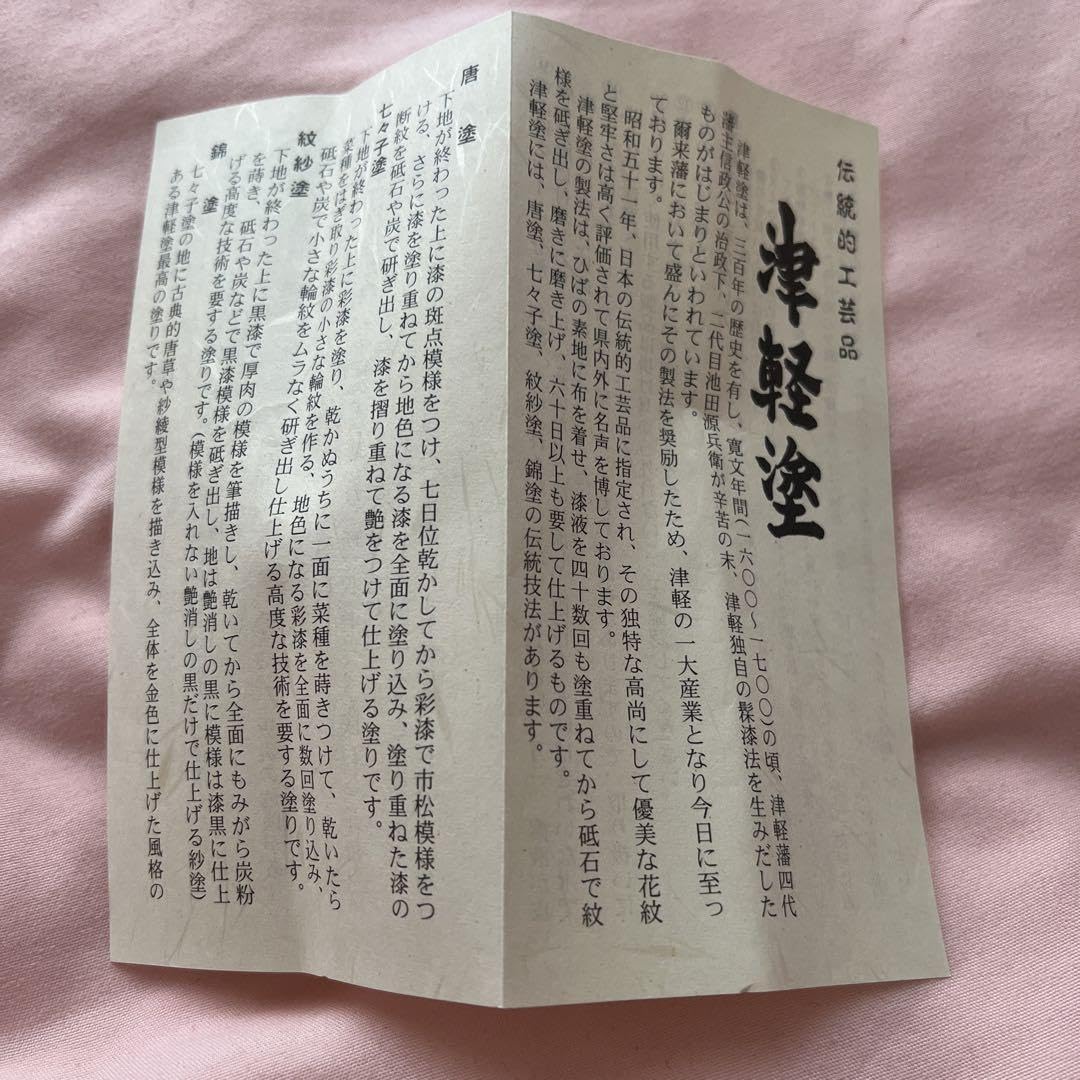 伝統的工芸品
津軽塗
津軽塗は、三百年の歴史を有し、寛文年間(一六〇〇〜一七〇〇)の頃、津軽藩四代
藩主信政公の治政下、二代目池田源兵衛が辛苦の末、津軽独自の髹漆法を生みだした
ものがはじまりといわれています。
爾来藩において盛んにその製法を奨励したため、津軽の一大産業となり今日に至っ
ております。
昭和五十一年、日本の伝統的工芸品に指定され、その独特な高尚にして優美な花紋
と堅牢さは高く評価されて県内外に名声を博しております。
津軽塗の製法は、ひばの素地に布を着せ、漆液を四十数回も塗重ねてから砥石で紋
様を砥ぎ出し、磨きに磨き上げ、六十日以上も要して仕上げるものです。
津軽塗には、唐塗、七々子塗、紋紗塗、錦塗の伝統技法があります。
唐塗
下地が終わった上に漆の斑点模様をつけ、七日位乾かしてから彩漆で市松模様をつ
ける、さらに漆を塗り重ねてから地色になる漆を全面に塗り込み、塗り重ねた漆の
断紋を砥石や炭で研ぎ出し、漆を摺り重ねて艶をつけて仕上げる塗りです。
七々子塗
下地が終わった上に彩漆を塗り、乾かぬうちに一面に菜種を蒔きつけて、乾いたら
菜種をはぎ取り彩漆の小さな輪紋を作る、地色になる彩漆を全面に数回塗り込み、
砥石や炭で小さな輪紋をムラなく研ぎ出し仕上げる高度な技術を要する塗りです。
紋紗塗
下地が終わった上に黒漆で厚肉の模様を筆描きし、乾いてから全面にもみがら炭粉
を蒔き、砥石や炭などで黒漆模様を砥ぎ出し、地は艶消しの黒に模様は漆黒に仕上
げる高度な技術を要する塗りです。(模様を入れない艶消しの黒だけで仕上げる紗塗)
錦塗
七々子塗の地に古典的唐草や紗綾型模様を描き込み、全体を金色に仕上げた風格の
ある津軽塗最高の塗りです。